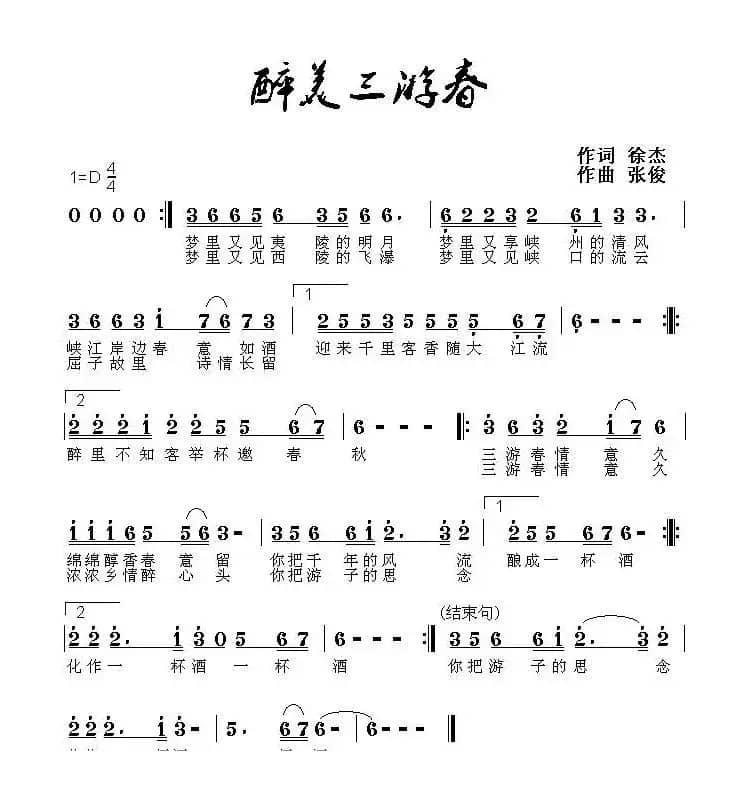 醉美三游春
作词 徐杰
1=D 4/4
作曲 张俊
0 0 0 0 :‖ 3 6 6 5 6 3 5 6 6. | 6 2 2 3 2 6 1 3 3. |
梦里又见夷 陵的明月 梦里又享峡 州的清风
梦里又见西 陵的飞瀑 梦里又见峡 口的流云
1
3 6 6 3 1 7 6 7 3 | 2 5 5 3 5 5 5 5 6 7 | 6 - - - :‖:
峡江岸边春 意 如酒 迎来千里客香随大 江流
屈子故里 诗情长留
2
2 2 2 1 2 2 5 5 6 7 | 6 - - - ‖: 3 6 3 2 1 7 6 |
醉里不知客举杯邀 春 秋 三游春情 意 久
三游春情 意 久
1
1 1 1 6 5 5 6 3 - | 3 5 5 6 1 2. 3 2 | 2 5 5 6 7 6 - :‖:
绵绵醇香春 意 留 你把千 年的风 流 酿成一 杯 酒
浓浓乡情醉 心 头 你把游 子的思 念
2
(结束句)
2 2 2. 1 3 0 5 6 7 | 6 - - - :‖ 3 5 5 6 1 2. 3 2 |
化作一 杯酒 一 杯 酒 你把游 子的思 念
2 2 2. 1 3 - | 5. 6 7 6 - | 6 - - - ‖